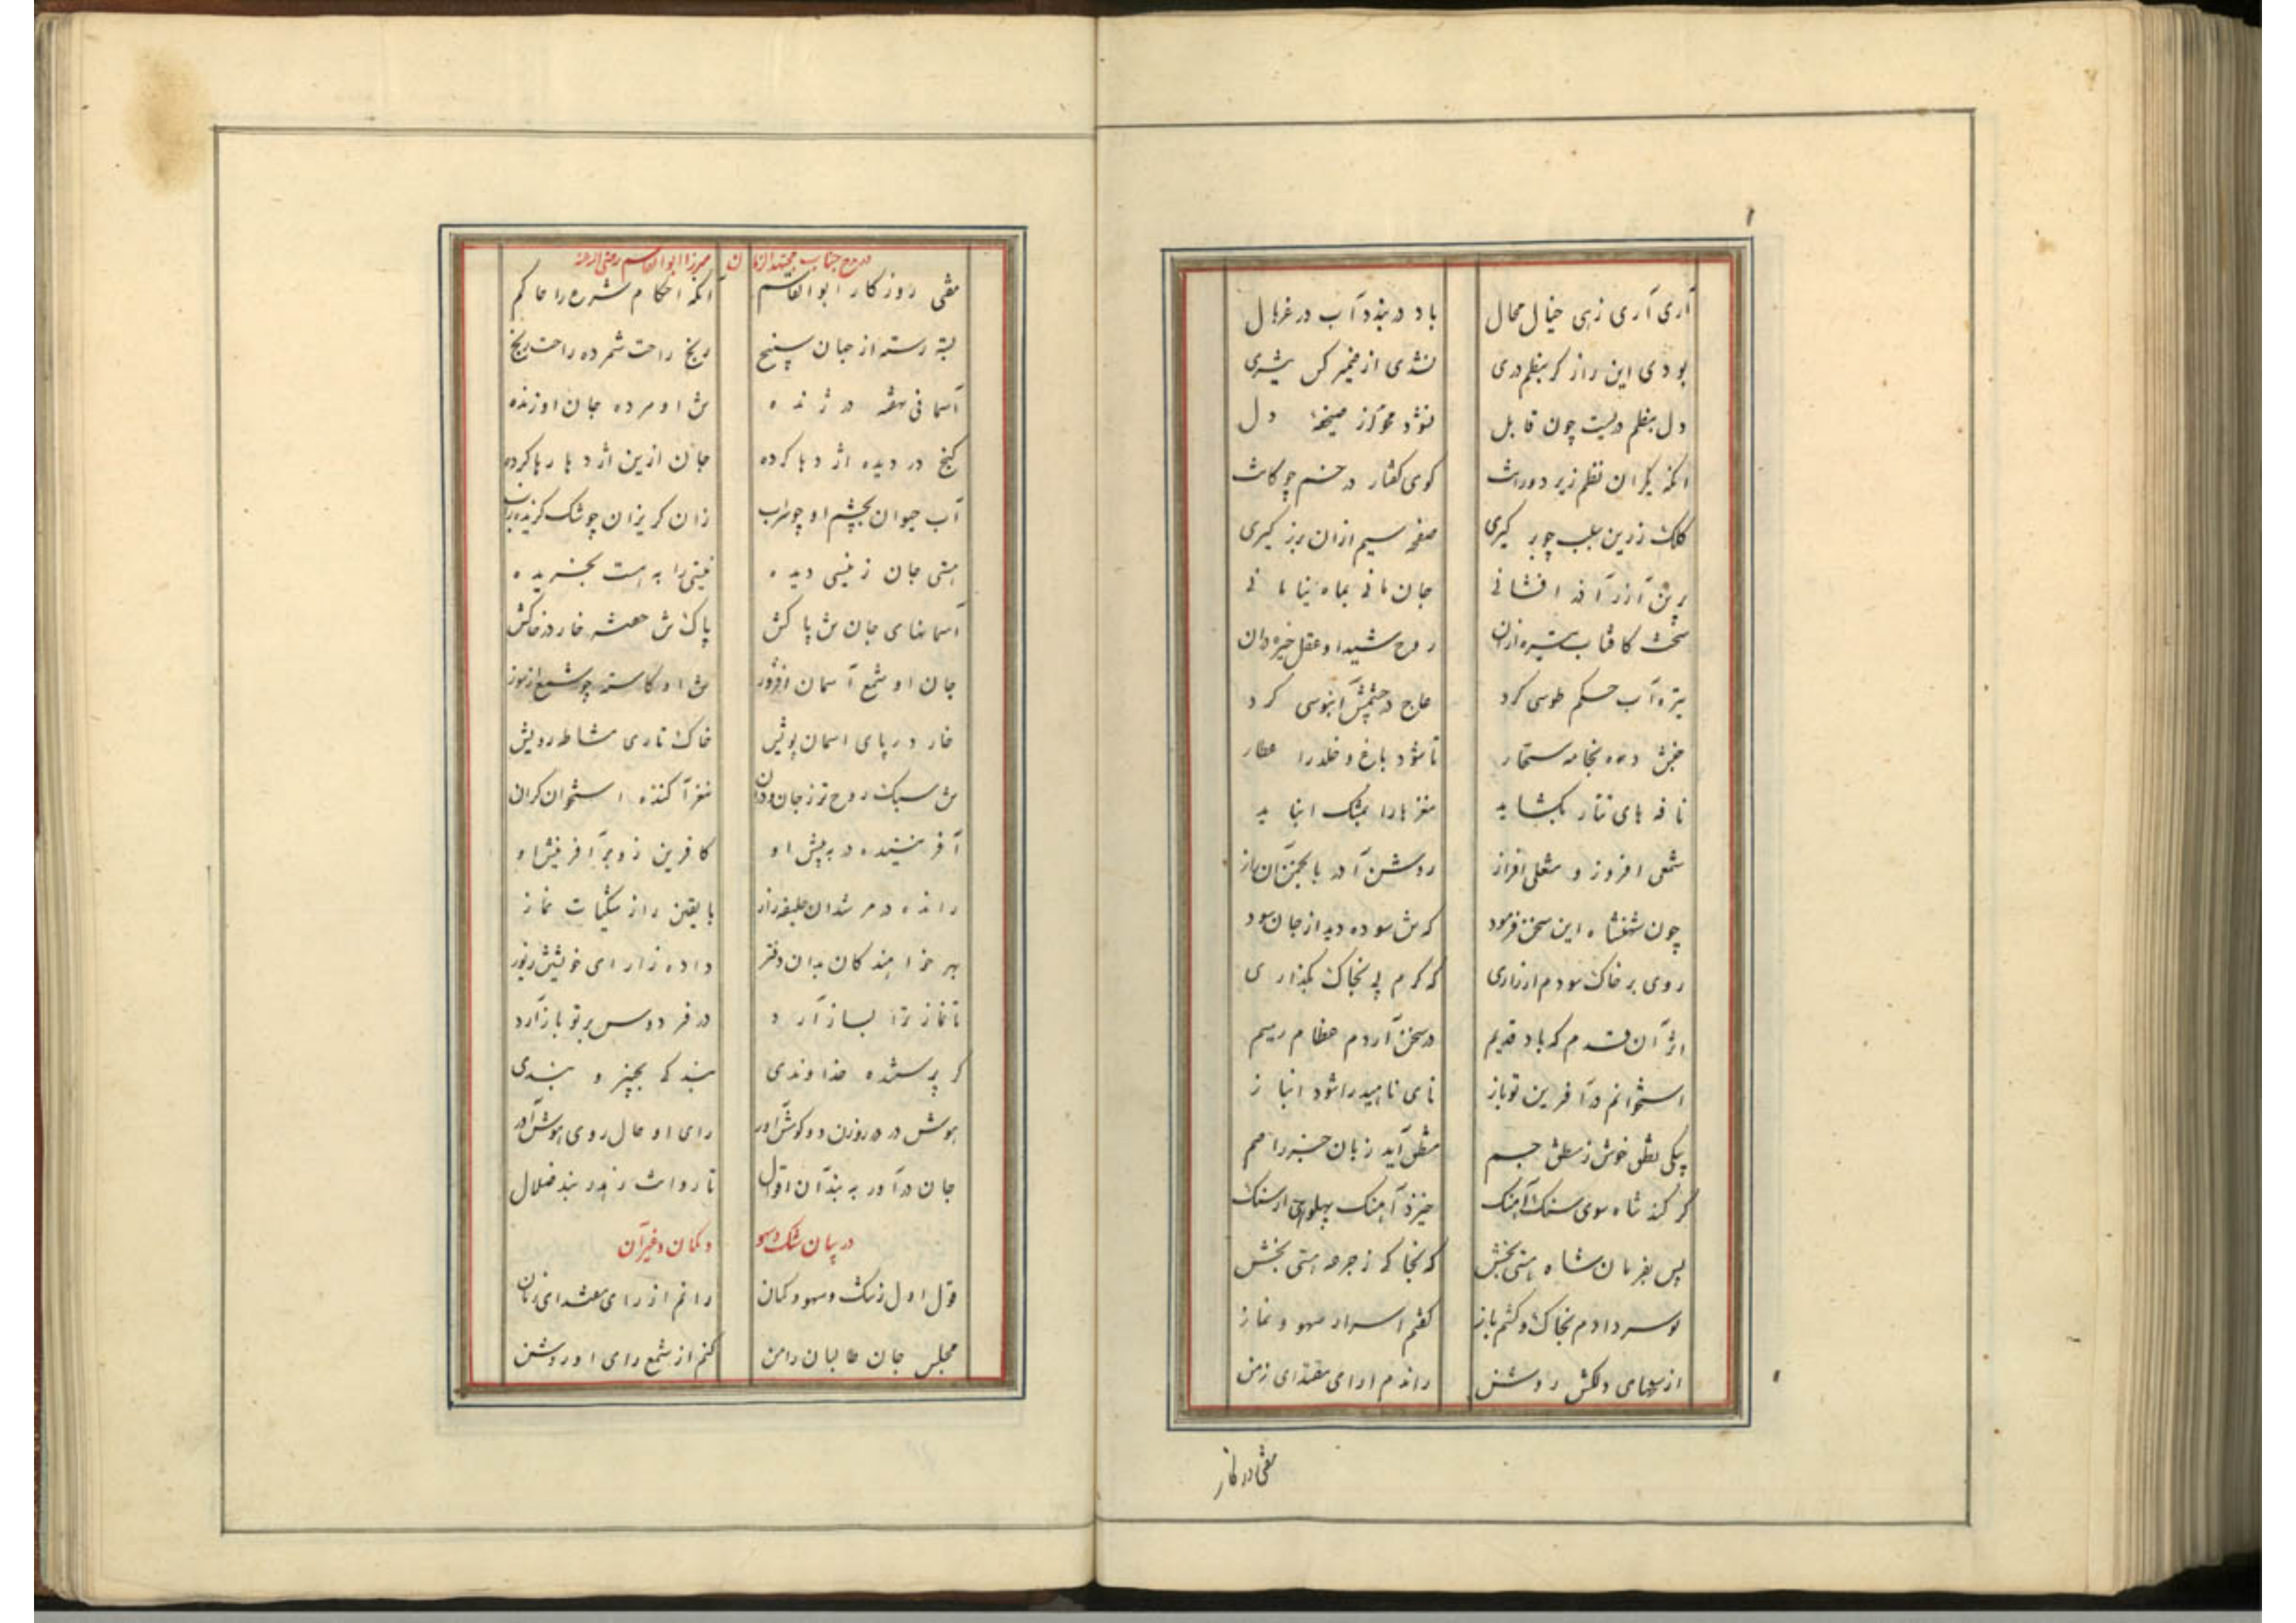 آری آری زهی خیال محال باد در بند و آب در غربال
بودی این راز گر بنظم دری نشدی از ضمیر کس
دل بنظم دریست چون قابل نشود محو از صحیفه دل
آنکه یکران نظم زیر دورانت کوی گفتار در خم چوکانت
کلک زرین بلب چو بر گیری صفحه سیم ازان بزر گیری
جان مانی بماه
سخت کافتاب تیره ازان روح شیدا و عقل خیره دان
تیره آب حکیم طوسی کرد عاج در چشمش آبنوسی کرد
جنبش ده به خامه سحار تا شود باغ و خلد را عطار
نافه های تتار بگشاید مغزها را بمشک انباید
شمعی افروز و مشعلی افراز روشن آور بانجمن آن راز
چون شهنشاه این سخن فرمود که ش سوده دید از جان سود
روی بر خاک سودم از زاری که گرم پی بخاک بگذاری
اثر آن قدم که باد قدیم در سخن آردم عظام رمیم
استخوانم در آفرین تو باز نای ناهید را شود انباز
یکی نطق خوش ز منطق جسم منطق آید زبان
گر کند شاه سوی سنک آهنک خیزد آهنک پهلوی از سنک
پس بفرمان شاه هستی بخش که بخاکه ز جرعه هستی بخش
بوسه دادم بخاک و گشتم باز گفتم اسرار سهو و نماز
از سهای دلکش روشن راندم از رای مقتدای زمن
مفتی روزکار
در مدح جناب مجتهد الزمان میرزا ابوالقاسم رضی الله عنه
مفتی روزکار ابوالقاسم آنکه احکام شرع را حاکم
بسته رسته از جهان سپنج رنج راحت شمرده راحت رنج
آسمانی نهفته در ژنده تن او مرده جان او زنده
گنج در دیده اژدها کرده جان ازین اژدها رها کرده
آب حیوان بچشم او چو سراب زان گریزان چو شک گزیده ز آب
هستی جان ز نیستی دیده نیستی را به هست بخریده
آسمانهای جان تن پاکش پاک تن خار در خاکش
جان او شمع آسمان افروز تن او کاسته چو شمع از سوز
خار در پای آسمان پویش خاک تاری مشاطه رویش
تن سبک روح تر ز جان و روان مغز آکنده استخوان گران
آفریننده در بپیش او کافرین زو بر آفرینش او
رانده در مرشدان خلیفه راز با یقین راز شکیات نماز
بهر خواهندکان بدان دفتر داده از رای خویشتن زیور
تا نماز ترا بساز آرد در فردوس بر تو باز آرد
گر پرستنده خداوندی بند که بچیز و بندی
هوش در در و زن و گوش آور رای او حال روی هوش آور
جان در آور به بند آن اقوال تا روانت رهد ز بند ضلال
در بیان شک و سهو و کمان و غیر آن
قول اول ز شک و سهو و کمان رانم از رای مقتدای زمان
مجلس جان طالبان را من کنم از شمع رای او روشن